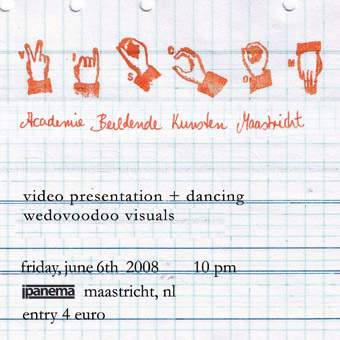 V I S C O M
Academie Beeldende Kunsten Maastricht
video presentation + dancing
wedovoodoo visuals
friday, june 6th 2008 10 pm
ipanema maastricht, nl
entry 4 euro